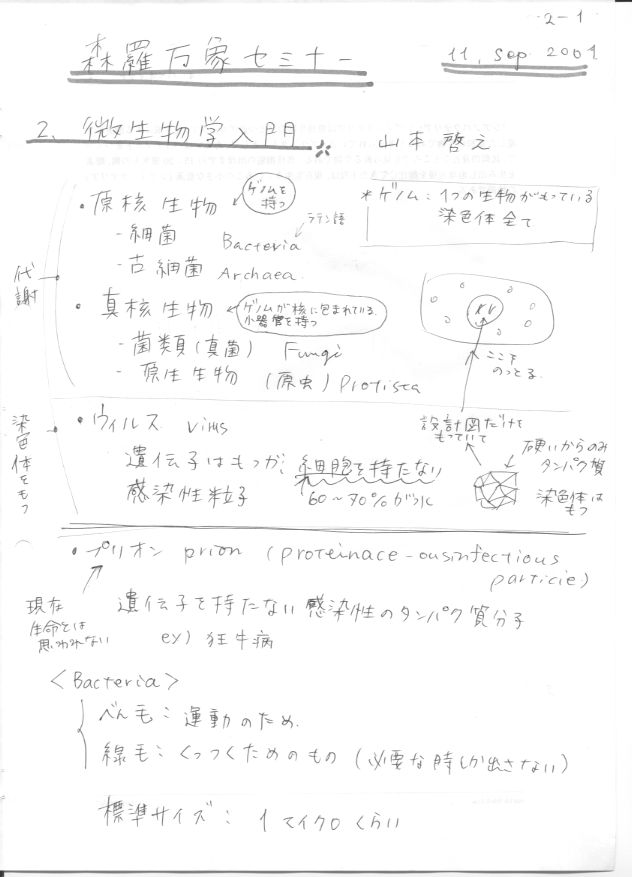 2-1
森羅万象セミナー
11, Sep 2001
2. 微生物学入門
山本啓之
・原核生物
ゲノムを
持つ
*ゲノム:1つの生物がもっている
染色体全て
- 細菌 Bacteria
ラテン語
- 古細菌 Archaea
代謝
・真核生物
ゲノムが核に包まれている
小器官を持つ
- 菌類(真菌) Fungi
- 原生生物 (原虫) Protista
ここで
のっとる
染色体をもつ
・ウィルス virus
設計図だけを
もっていて
遺伝子はもつが、細胞を持たない
感染性粒子
60~70%が水
硬いからのみ
タンパク質
染色体は
もつ
・プリオン prion (proteinace-ousinfectious
particie)
現在
生命とは
思われない
遺伝子を持たない感染性のタンパク質分子
ex) 狂牛病
<Bacteria>
べん毛:運動のため
線毛:くっつくためのもの(必要な時しか出さない)
標準サイズ: 1マイクロくらい